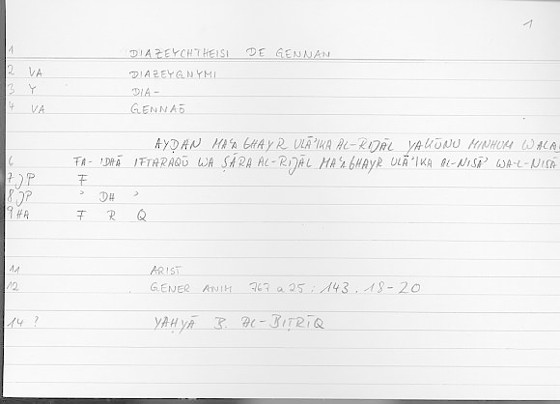 1
1 DIAZEYCHTHEISI DE GENNAN
2 VA DIAZEYGNYMI
3 Y DIA-
4 VA GENNAŌ
AYḌAN MAʿA GHAYR ULĀʾIKA AL-RIJĀL YAKŪNU MINHUM WALA
6 FA-IDHĀ IFTARAQŪ WA ṢĀRA AL-RIJĀL MAʿA GHAYR ULĀʾIKA AL-NISĀʾ WA-L-NISĀ
7 JP F
8 JP ʾ DH ʾ
9 HA F R Q
11 ARIST
12 GENER ANIM 767 a 25 : 143.18-20
14 ? YAḤYĀ B. AL-BIṬRĪQ